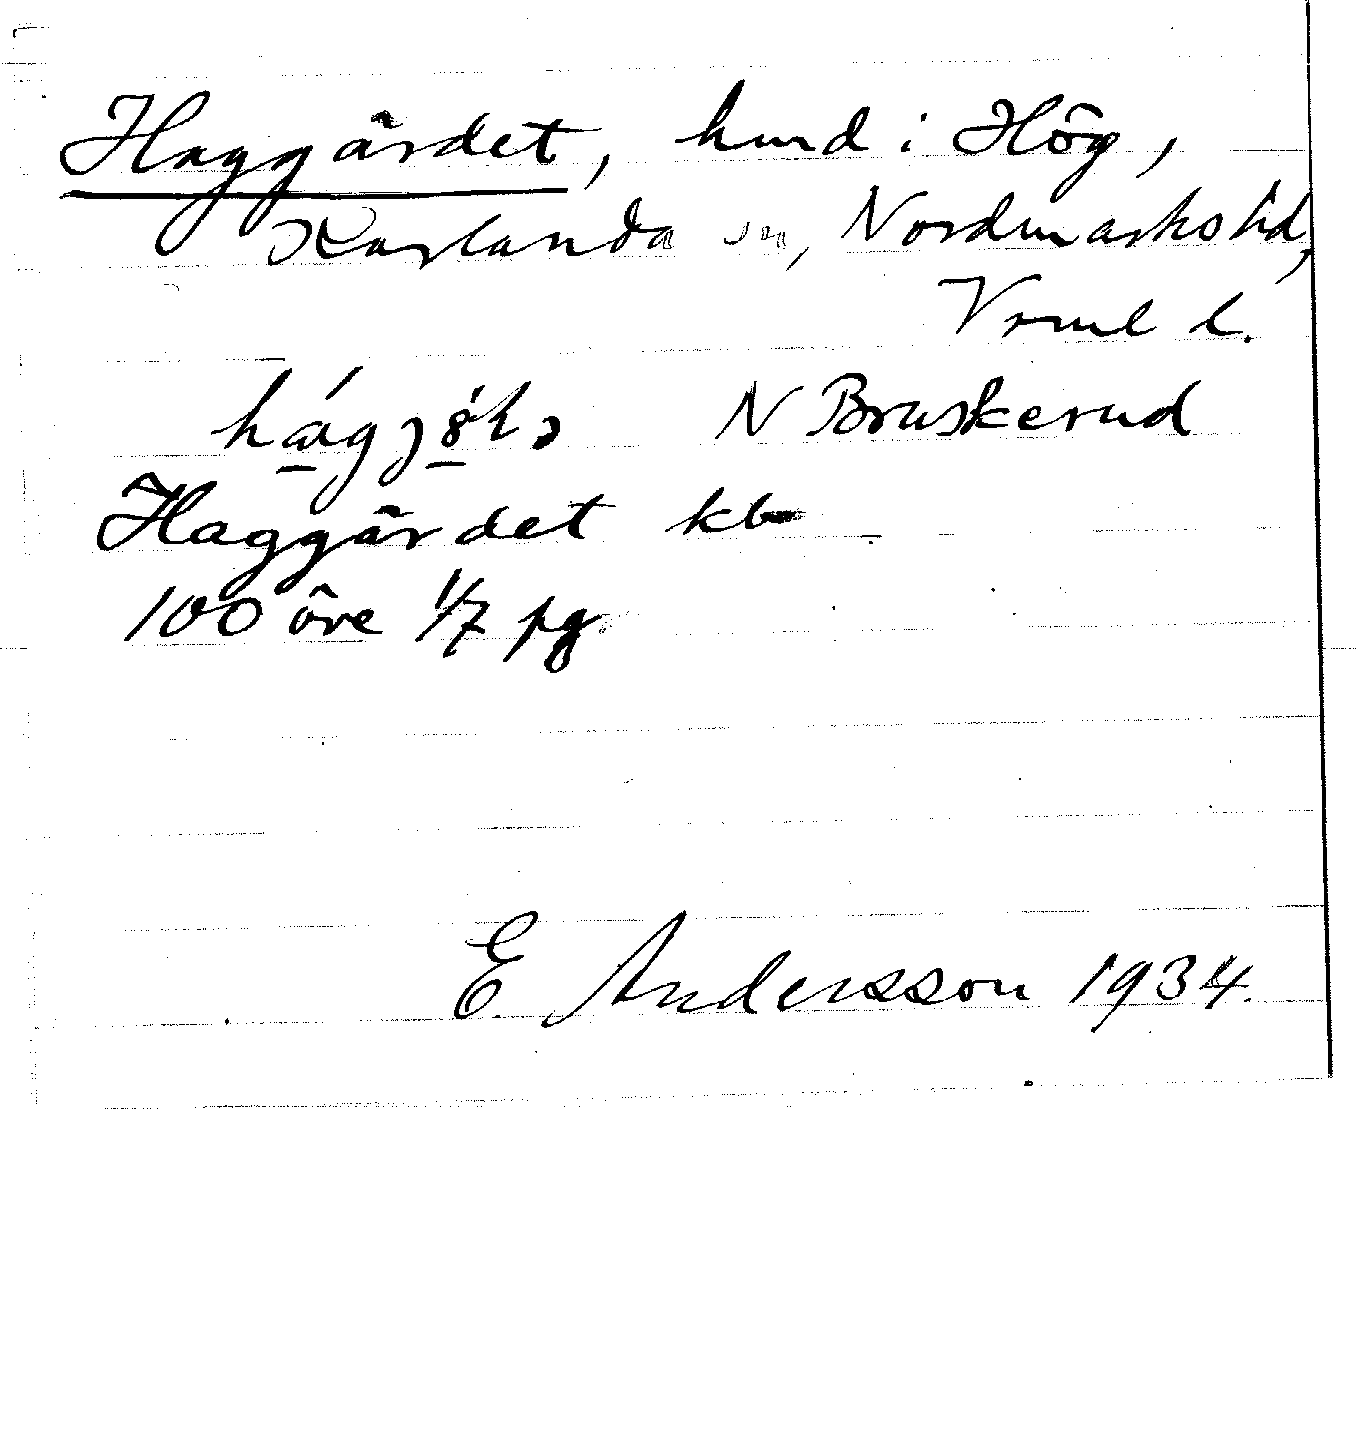 Haggärdet, hmd i Hög,
Karlanda sn, Nordmarks hd,
Vrml l.
N Bruskerud
Haggärdet kb
100 öre 1/7 pg.
E Andersson 1934.